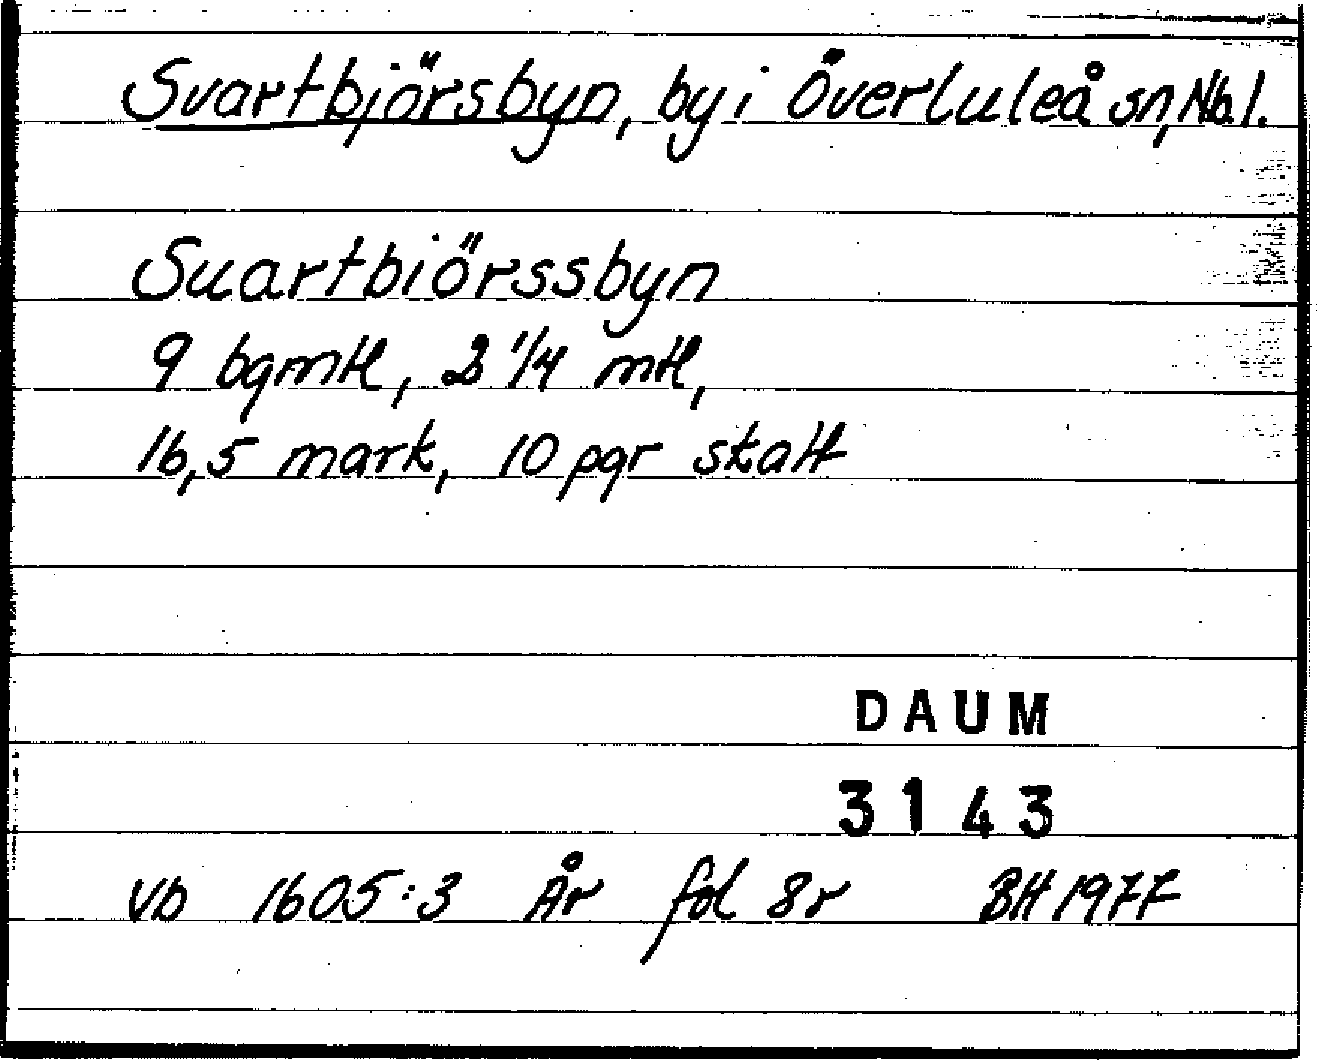 Svartbjörsbyn, by i Överluleå sn, Nb.l.
Suartbiörssbyn
9 bgmtl, 2 1/4 mtl,
16,5 mark, 10 pgr skatt
DAUM
3143
Vb 1605:3 År fol 8r BH 1977